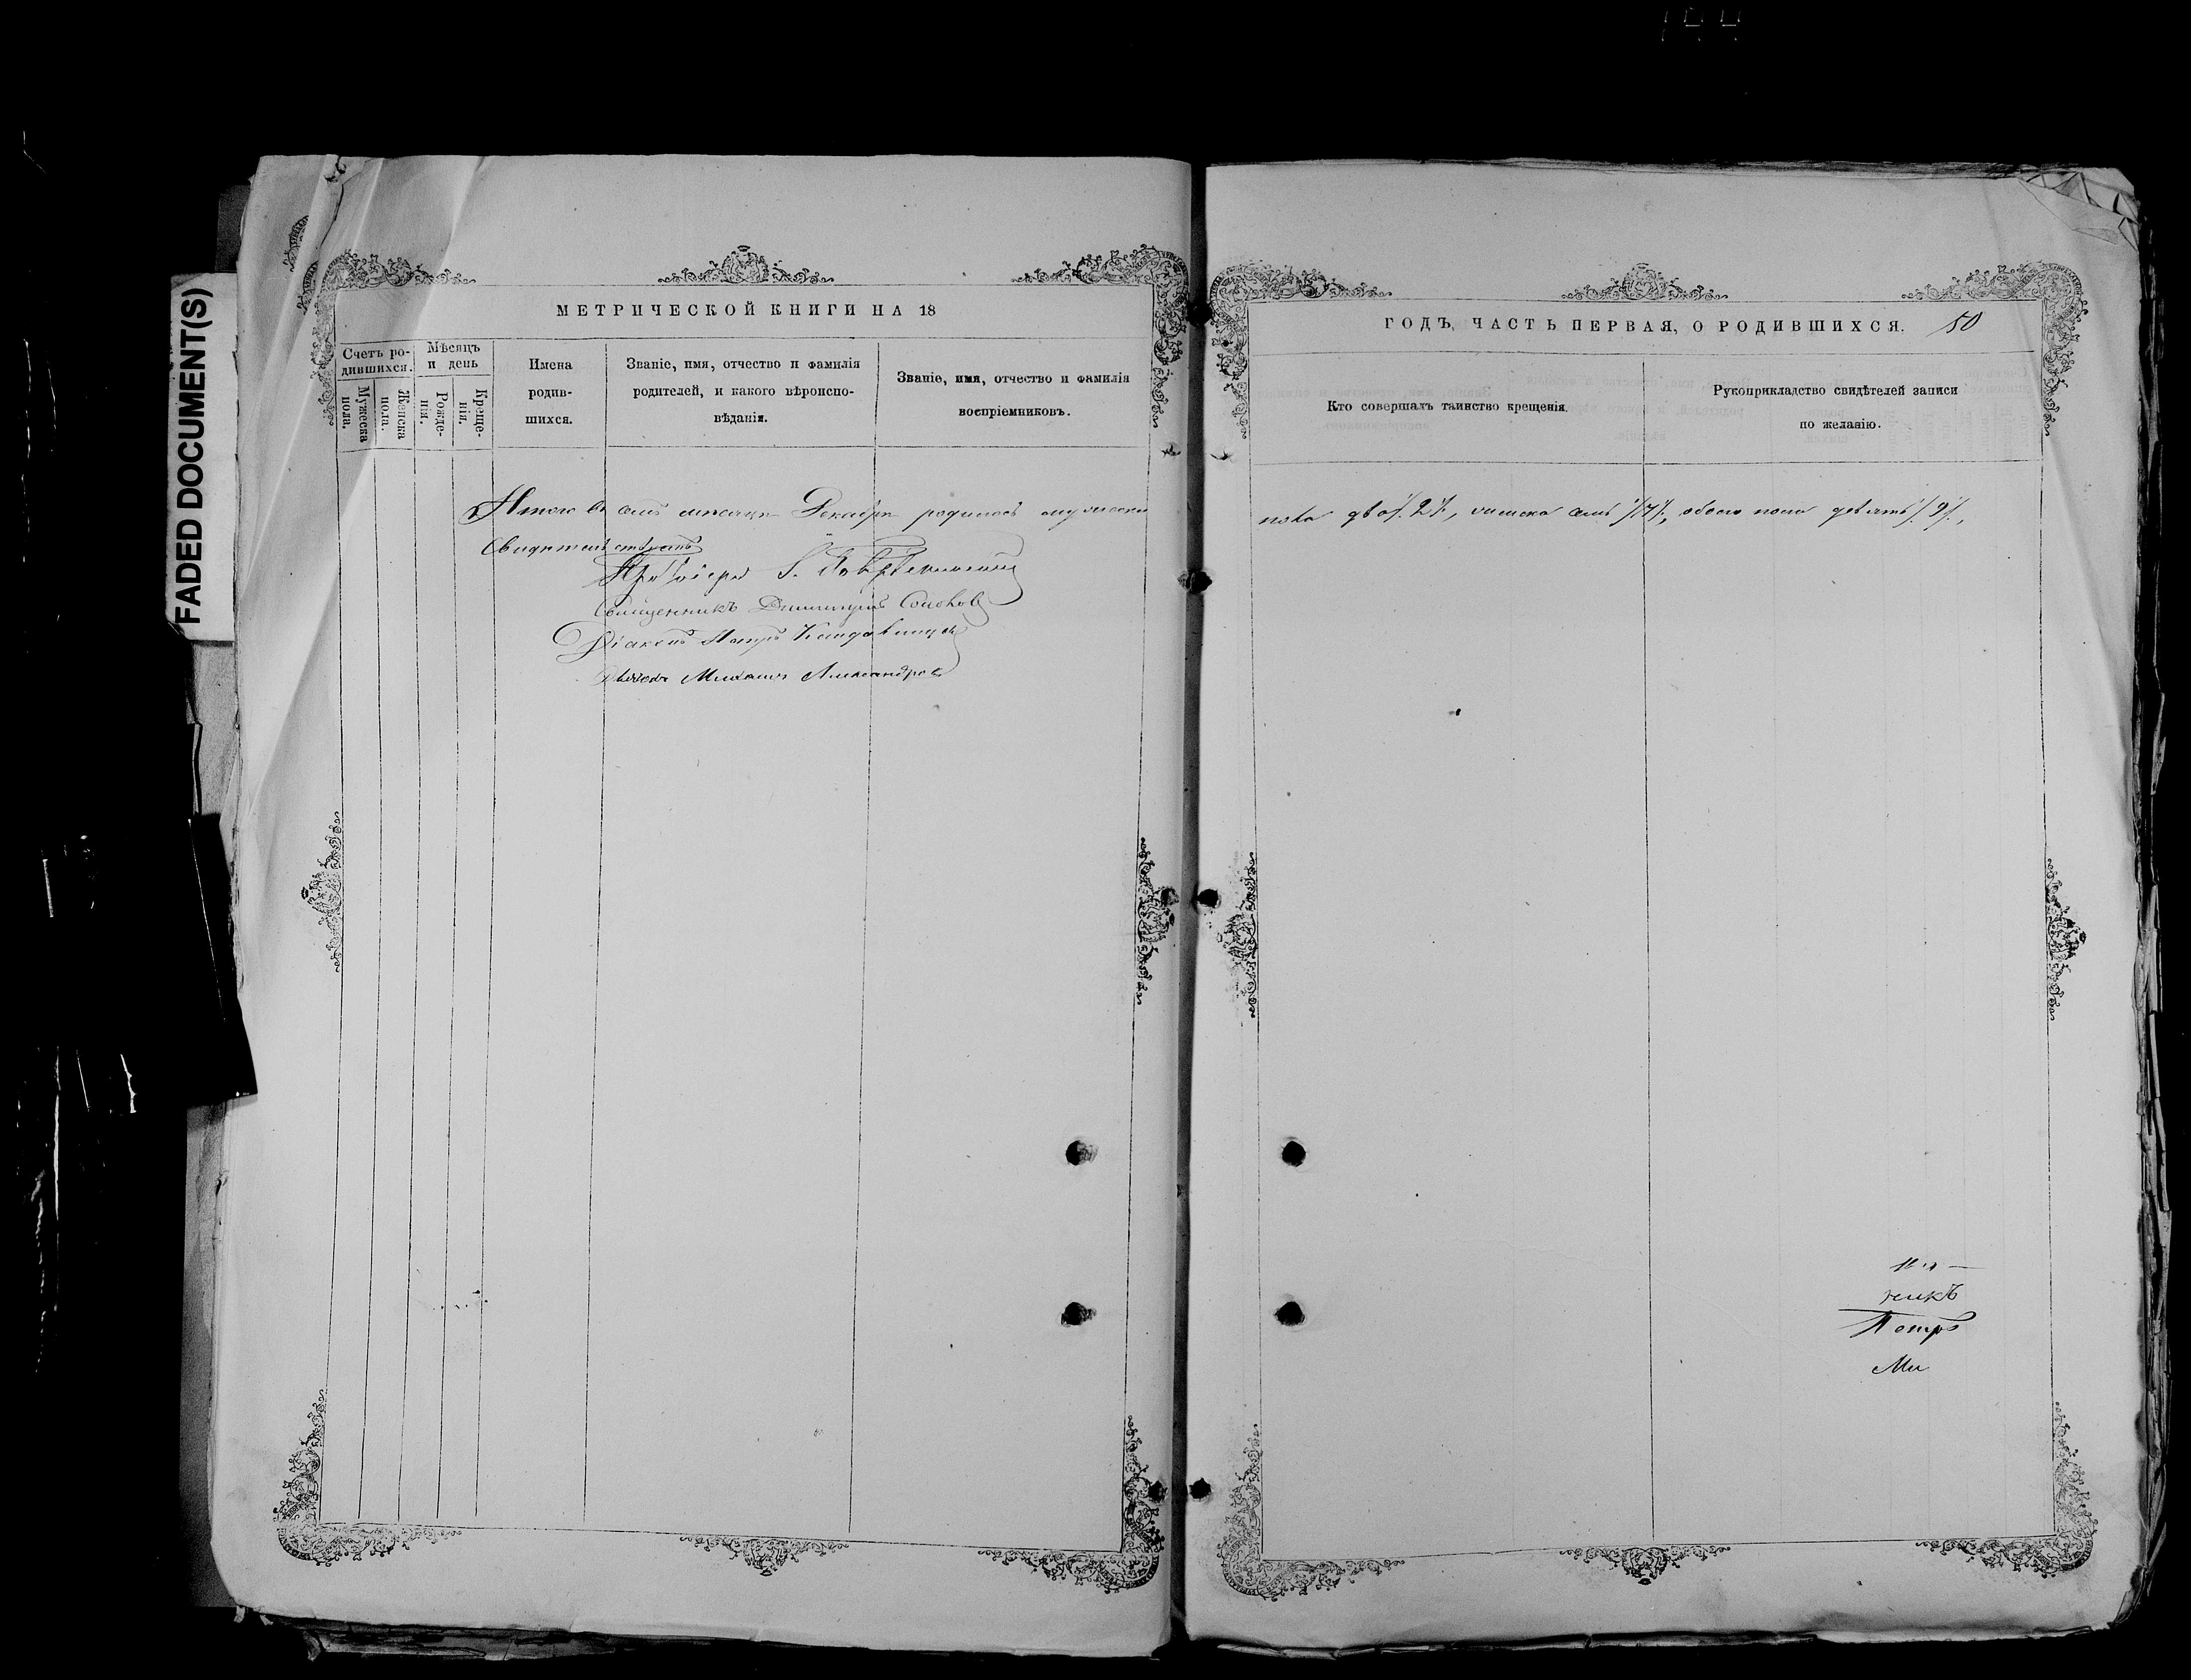 FADED DOCUMENT(S)
МЕТРИЧЕСКОЙ КНИГИ НА 18
Счетъ ро-
дившихся.
Мужеска
пола.
Женска
пола.
Мѣсяцъ
и день
Рожде-
нія.
Креще-
нія.
Имена
родив-
шихся.
Званіе, имя, отчество и фамилія
родителей, и какого вѣроиспо-
вѣданія.
Званіе, имя, отчество и фамилія
воспріемниковъ.
Итого въ семъ мѣсяцѣ Декабрѣ родилось мужеска
Протоіерей
Священникъ Димитрій
Діаконъ Петръ
Михаилъ Александровъ
ГОДЪ, ЧАСТЬ ПЕРВАЯ, О РОДИВШИХСЯ. 50
Кто совершалъ таинство крещенія.
Рукоприкладство свидѣтелей записи
по желанію.
пола два /2/, женска семь /7/, обоего пола девять /9/,
никъ
Петръ
Ми